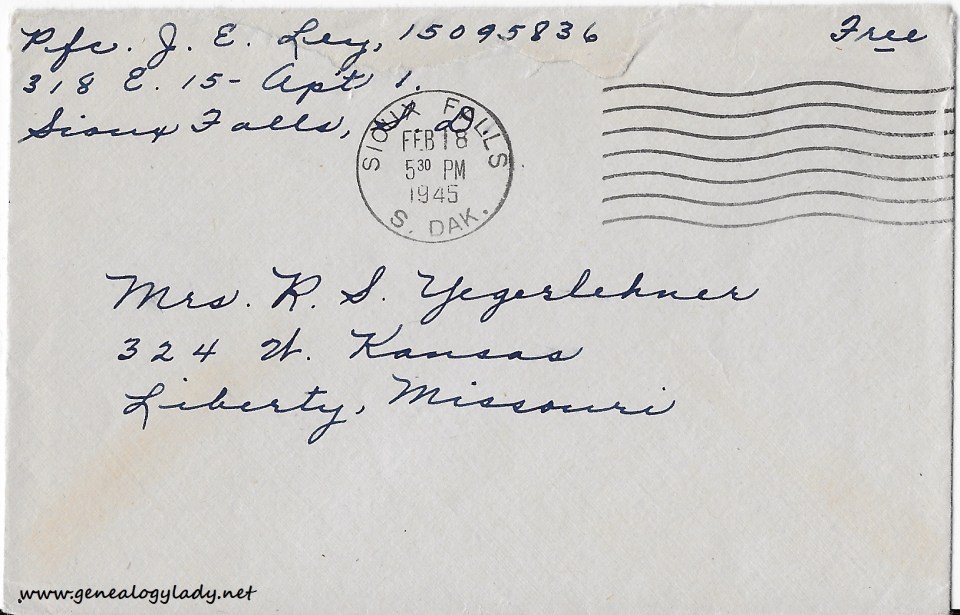 Pfc. J. E. Ley, 15095836
Free
318 E. 15 - Apt 1.
Sioux Falls, S. D.
SIOUX FALLS
FEB 18
5 30 PM
1945
S. DAK.
Mrs. R. S. Yegerlehner
324 W. Kansas
Liberty, Missouri
www.genealogylady.net